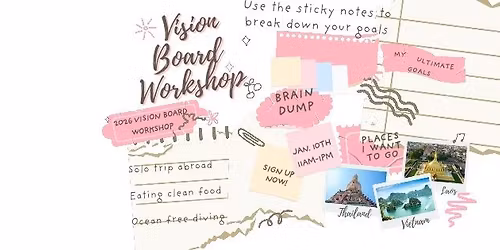 Vision
Board
Workshop
2026 VISION BOARD
WORKSHOP
Solo trip abroad
Eating clean food
Ocean free diving
Use the sticky notes to
break down your goals
MY ULTIMATE
GOALS
BRAIN
DUMP
JAN. 10TH
11AM-1PM
SIGN UP
NOW!
PLACES
I WANT
TO GO
Thailand
Vietnam
Laos